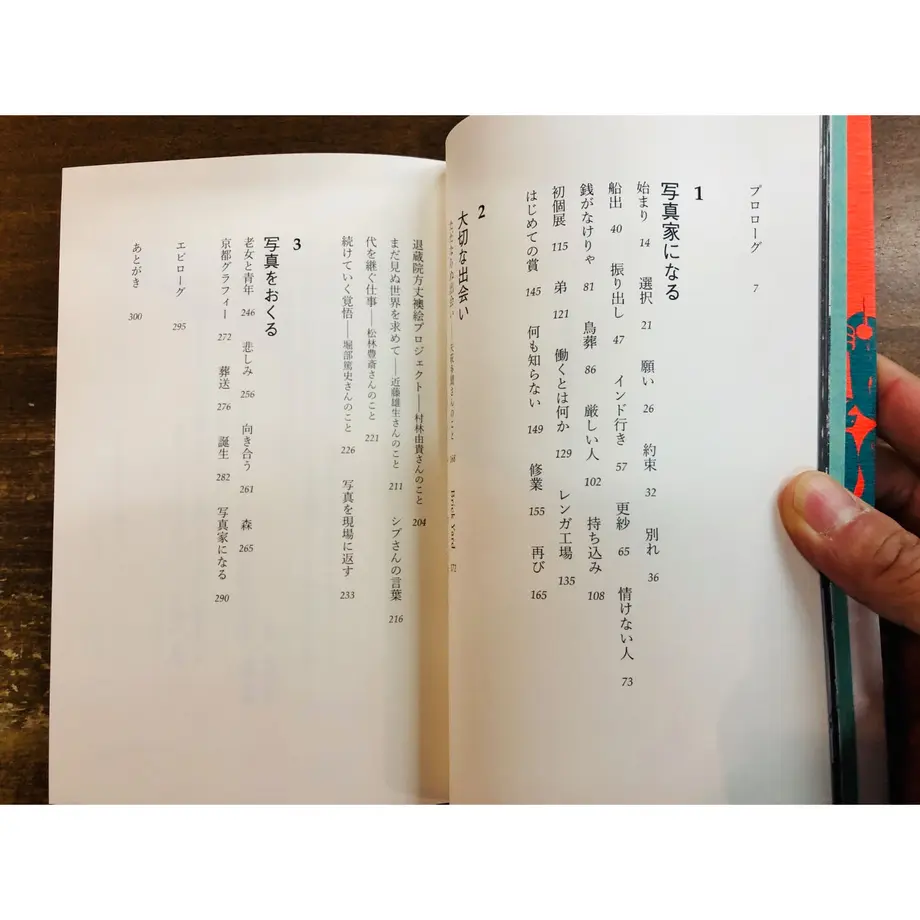 プロローグ 7
1
写真家になる
始まり 14 選択 21 願い 26 約束 32 別れ 36
船出 40 振り出し 47 インド行き 57 更紗 65 情けない人 73
銭がなけりゃ 81 鳥葬 86 厳しい人 102 持ち込み 108
初個展 115 弟 121 働くとは何か 129 レンガ工場 135
はじめての賞 145 何も知らない 149 修業 155 再び 165
2
大切な出会い
Brick Yard
退蔵院方丈襖絵プロジェクト——村林由貴さんのこと 204
まだ見ぬ世界を求めて——近藤雄生さんのこと 211 シブさんの言葉 216
代を継ぐ仕事——松林豊斎さんのこと 221
続けていく覚悟——堀部篤史さんのこと 226 写真を現場に返す 233
3
写真をおくる
老女と青年 246 悲しみ 256 向き合う 261 森 265
京都グラフィー 272 葬送 276 誕生 282 写真家になる 290
エピローグ 295
あとがき 300